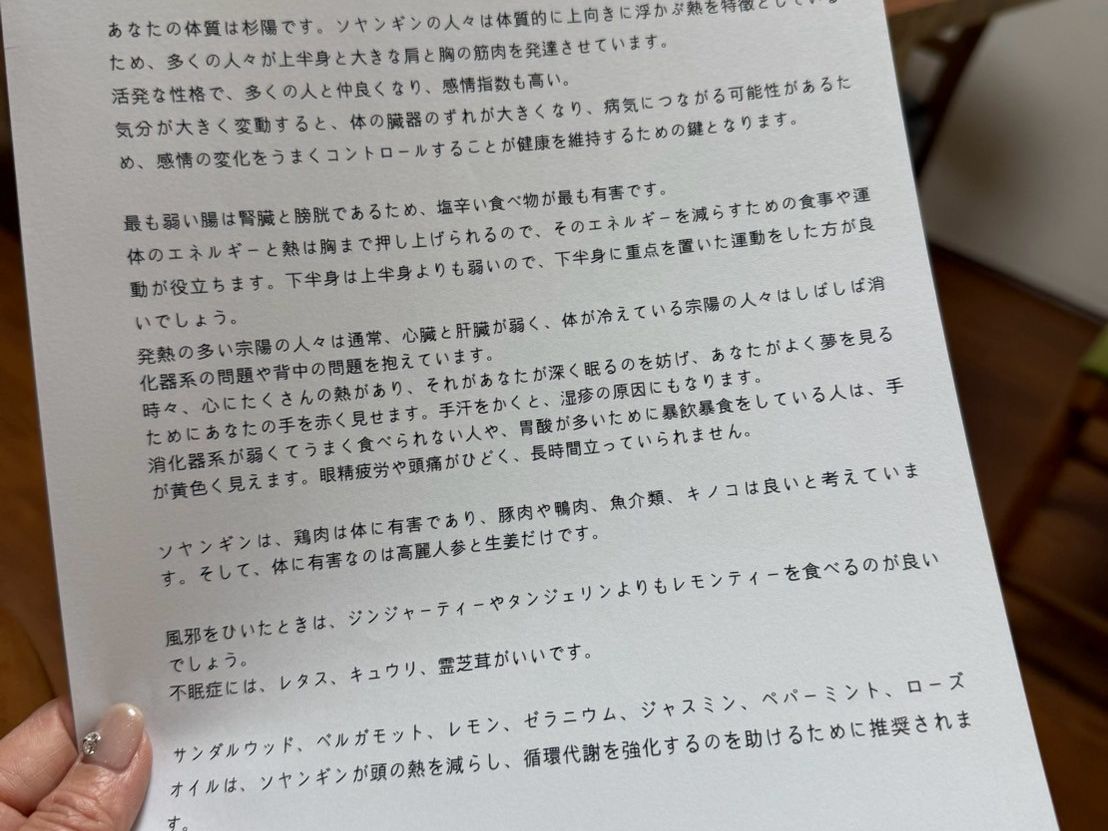 あなたの体質は杉陽です。ソヤンギンの人々は体質的に上向きに浮かぶ熱を特徴としている
ため、多くの人々が上半身と大きな肩と胸の筋肉を発達させています。
活発な性格で、多くの人と仲良くなり、感情指数も高い。
気分が大きく変動すると、体の臓器のずれが大きくなり、病気につながる可能性があるた
め、感情の変化をうまくコントロールすることが健康を維持するための鍵となります。
最も弱い腸は腎臓と膀胱であるため、塩辛い食べ物が最も有害です。
体のエネルギーと熱は胸まで押し上げられるので、そのエネルギーを減らすための食事や運
動が役立ちます。下半身は上半身よりも弱いので、下半身に重点を置いた運動をした方が良
いでしょう。
発熱の多い宗陽の人々は通常、心臓と肝臓が弱く、体が冷えている宗陽の人々はしばしば消
化器系の問題や背中の問題を抱えています。
時々、心にたくさんの熱があり、それがあなたが深く眠るのを妨げ、あなたがよく夢を見る
ためにあなたの手を赤く見せます。手汗をかくと、湿疹の原因にもなります。
消化器系が弱くてうまく食べられない人や、胃酸が多いために暴飲暴食をしている人は、手
が黄色く見えます。眼精疲労や頭痛がひどく、長時間立っていられません。
ソヤンギンは、鶏肉は体に有害であり、豚肉や鴨肉、魚介類、キノコは良いと考えていま
す。そして、体に有害なのは高麗人参と生姜だけです。
風邪をひいたときは、ジンジャーティーやタンジェリンよりもレモンティーを食べるのが良い
でしょう。
不眠症には、レタス、キュウリ、霊芝茸がいいです。
サンダルウッド、ベルガモット、レモン、ゼラニウム、ジャスミン、ペパーミント、ローズ
オイルは、ソヤンギンが頭の熱を減らし、循環代謝を強化するのを助けるために推奨されま
す。